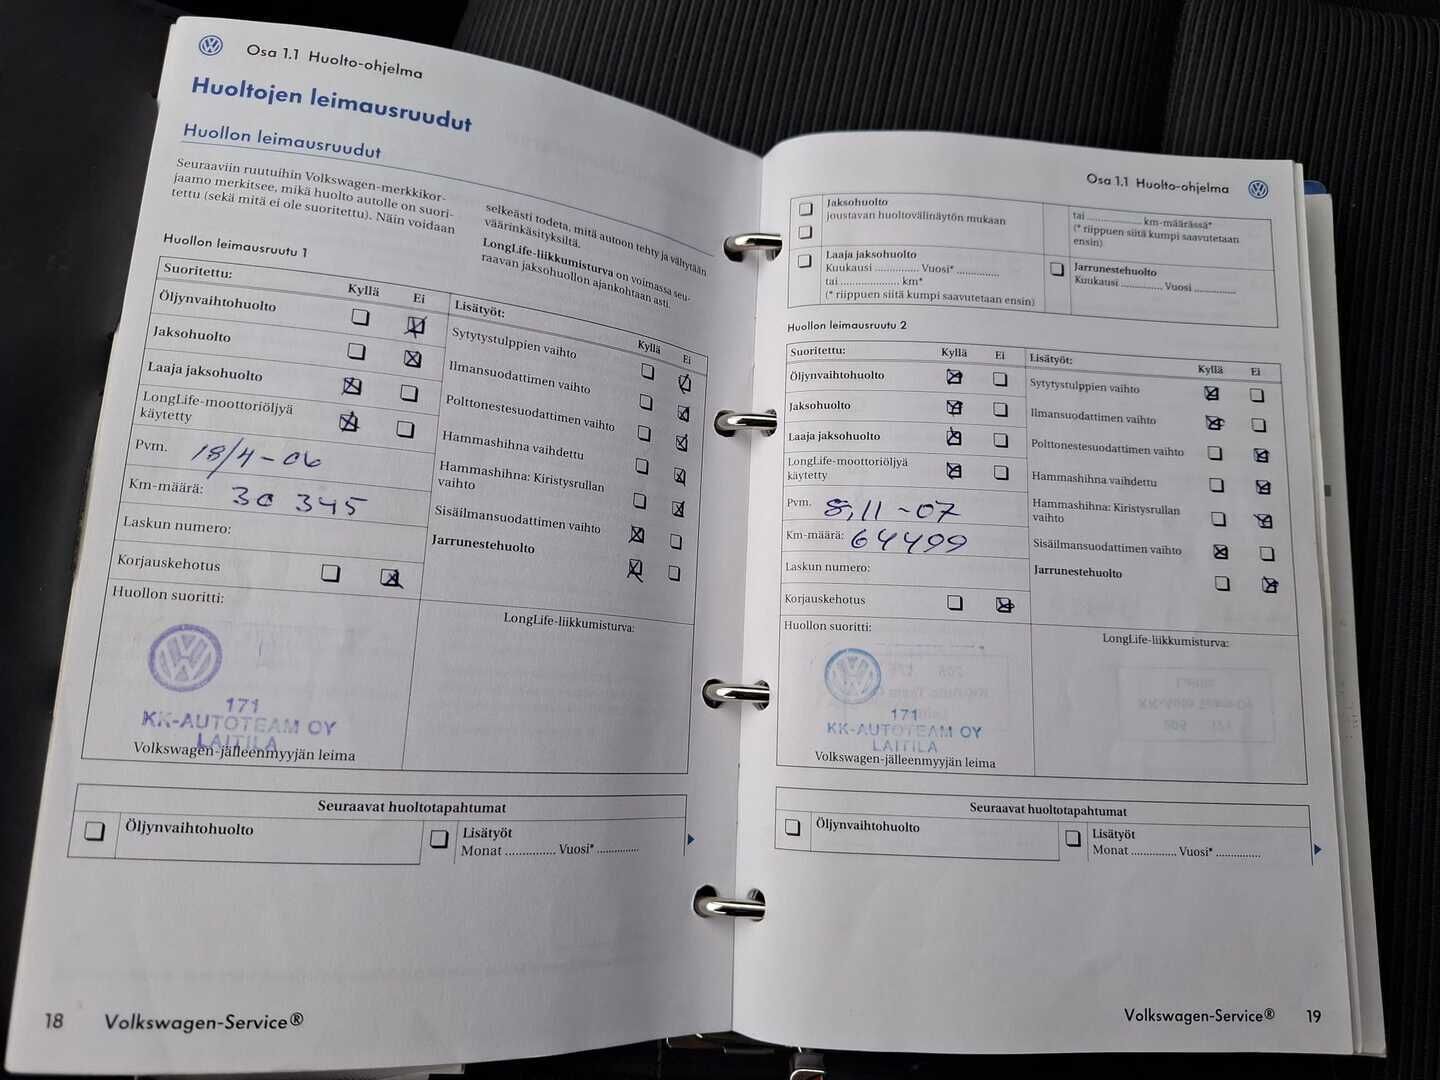 Osa 1.1 Huolto-ohjelma
Huoltojen leimausruudut
Huollon leimausruudut
Seuraaviin ruutuihin Volkswagen-merkkikor-
jaamo merkitsee, mikä huolto autolle on suori-
tettu (sekä mitä ei ole suoritettu). Näin voidaan
selkeästi todeta, mitä autoon tehty ja vältytään
väärinkäsityksiltä.
LongLife-liikkumisturva on voimassa seu-
raavan jaksohuollon ajankohtaan asti.
Huollon leimausruutu 1
Suoritettu: Kyllä Ei
Öljynvaihtohuolto
Jaksohuolto
Laaja jaksohuolto
LongLife-moottoriöljyä
käytetty
Pvm. 18/4-06
Km-määrä: 30 345
Laskun numero:
Korjauskehotus
Huollon suoritti:
171
KK-AUTOTEAM OY
LAITILA
Volkswagen-jälleenmyyjän leima
Lisätyöt: Kyllä Ei
Sytytystulppien vaihto
Ilmansuodattimen vaihto
Polttonestesuodattimen vaihto
Hammashihna vaihdettu
Hammashihna: Kiristysrullan
vaihto
Sisäilmansuodattimen vaihto
Jarrunestehuolto
LongLife-liikkumisturva:
Seuraavat huoltotapahtumat
Öljynvaihtohuolto
Lisätyöt
Monat .............. Vuosi* ............
18 Volkswagen-Service®
Osa 1.1 Huolto-ohjelma
Jaksohuolto
joustavan huoltovälinäytön mukaan
tai ................ km-määrässä*
(* riippuen siitä kumpi saavutetaan
ensin)
Laaja jaksohuolto
Kuukausi ............. Vuosi* ............
tai .................... km*
(* riippuen siitä kumpi saavutetaan ensin)
Jarrunestehuolto
Kuukausi ............. Vuosi ............
Huollon leimausruutu 2
Suoritettu: Kyllä Ei
Öljynvaihtohuolto
Jaksohuolto
Laaja jaksohuolto
LongLife-moottoriöljyä
käytetty
Pvm. 8,11-07
Km-määrä: 64499
Laskun numero:
Korjauskehotus
Huollon suoritti:
171
KK-AUTOTEAM OY
LAITILA
Volkswagen-jälleenmyyjän leima
Lisätyöt: Kyllä Ei
Sytytystulppien vaihto
Ilmansuodattimen vaihto
Polttonestesuodattimen vaihto
Hammashihna vaihdettu
Hammashihna: Kiristysrullan
vaihto
Sisäilmansuodattimen vaihto
Jarrunestehuolto
LongLife-liikkumisturva:
Seuraavat huoltotapahtumat
Öljynvaihtohuolto
Lisätyöt
Monat .............. Vuosi* ............
Volkswagen-Service® 19